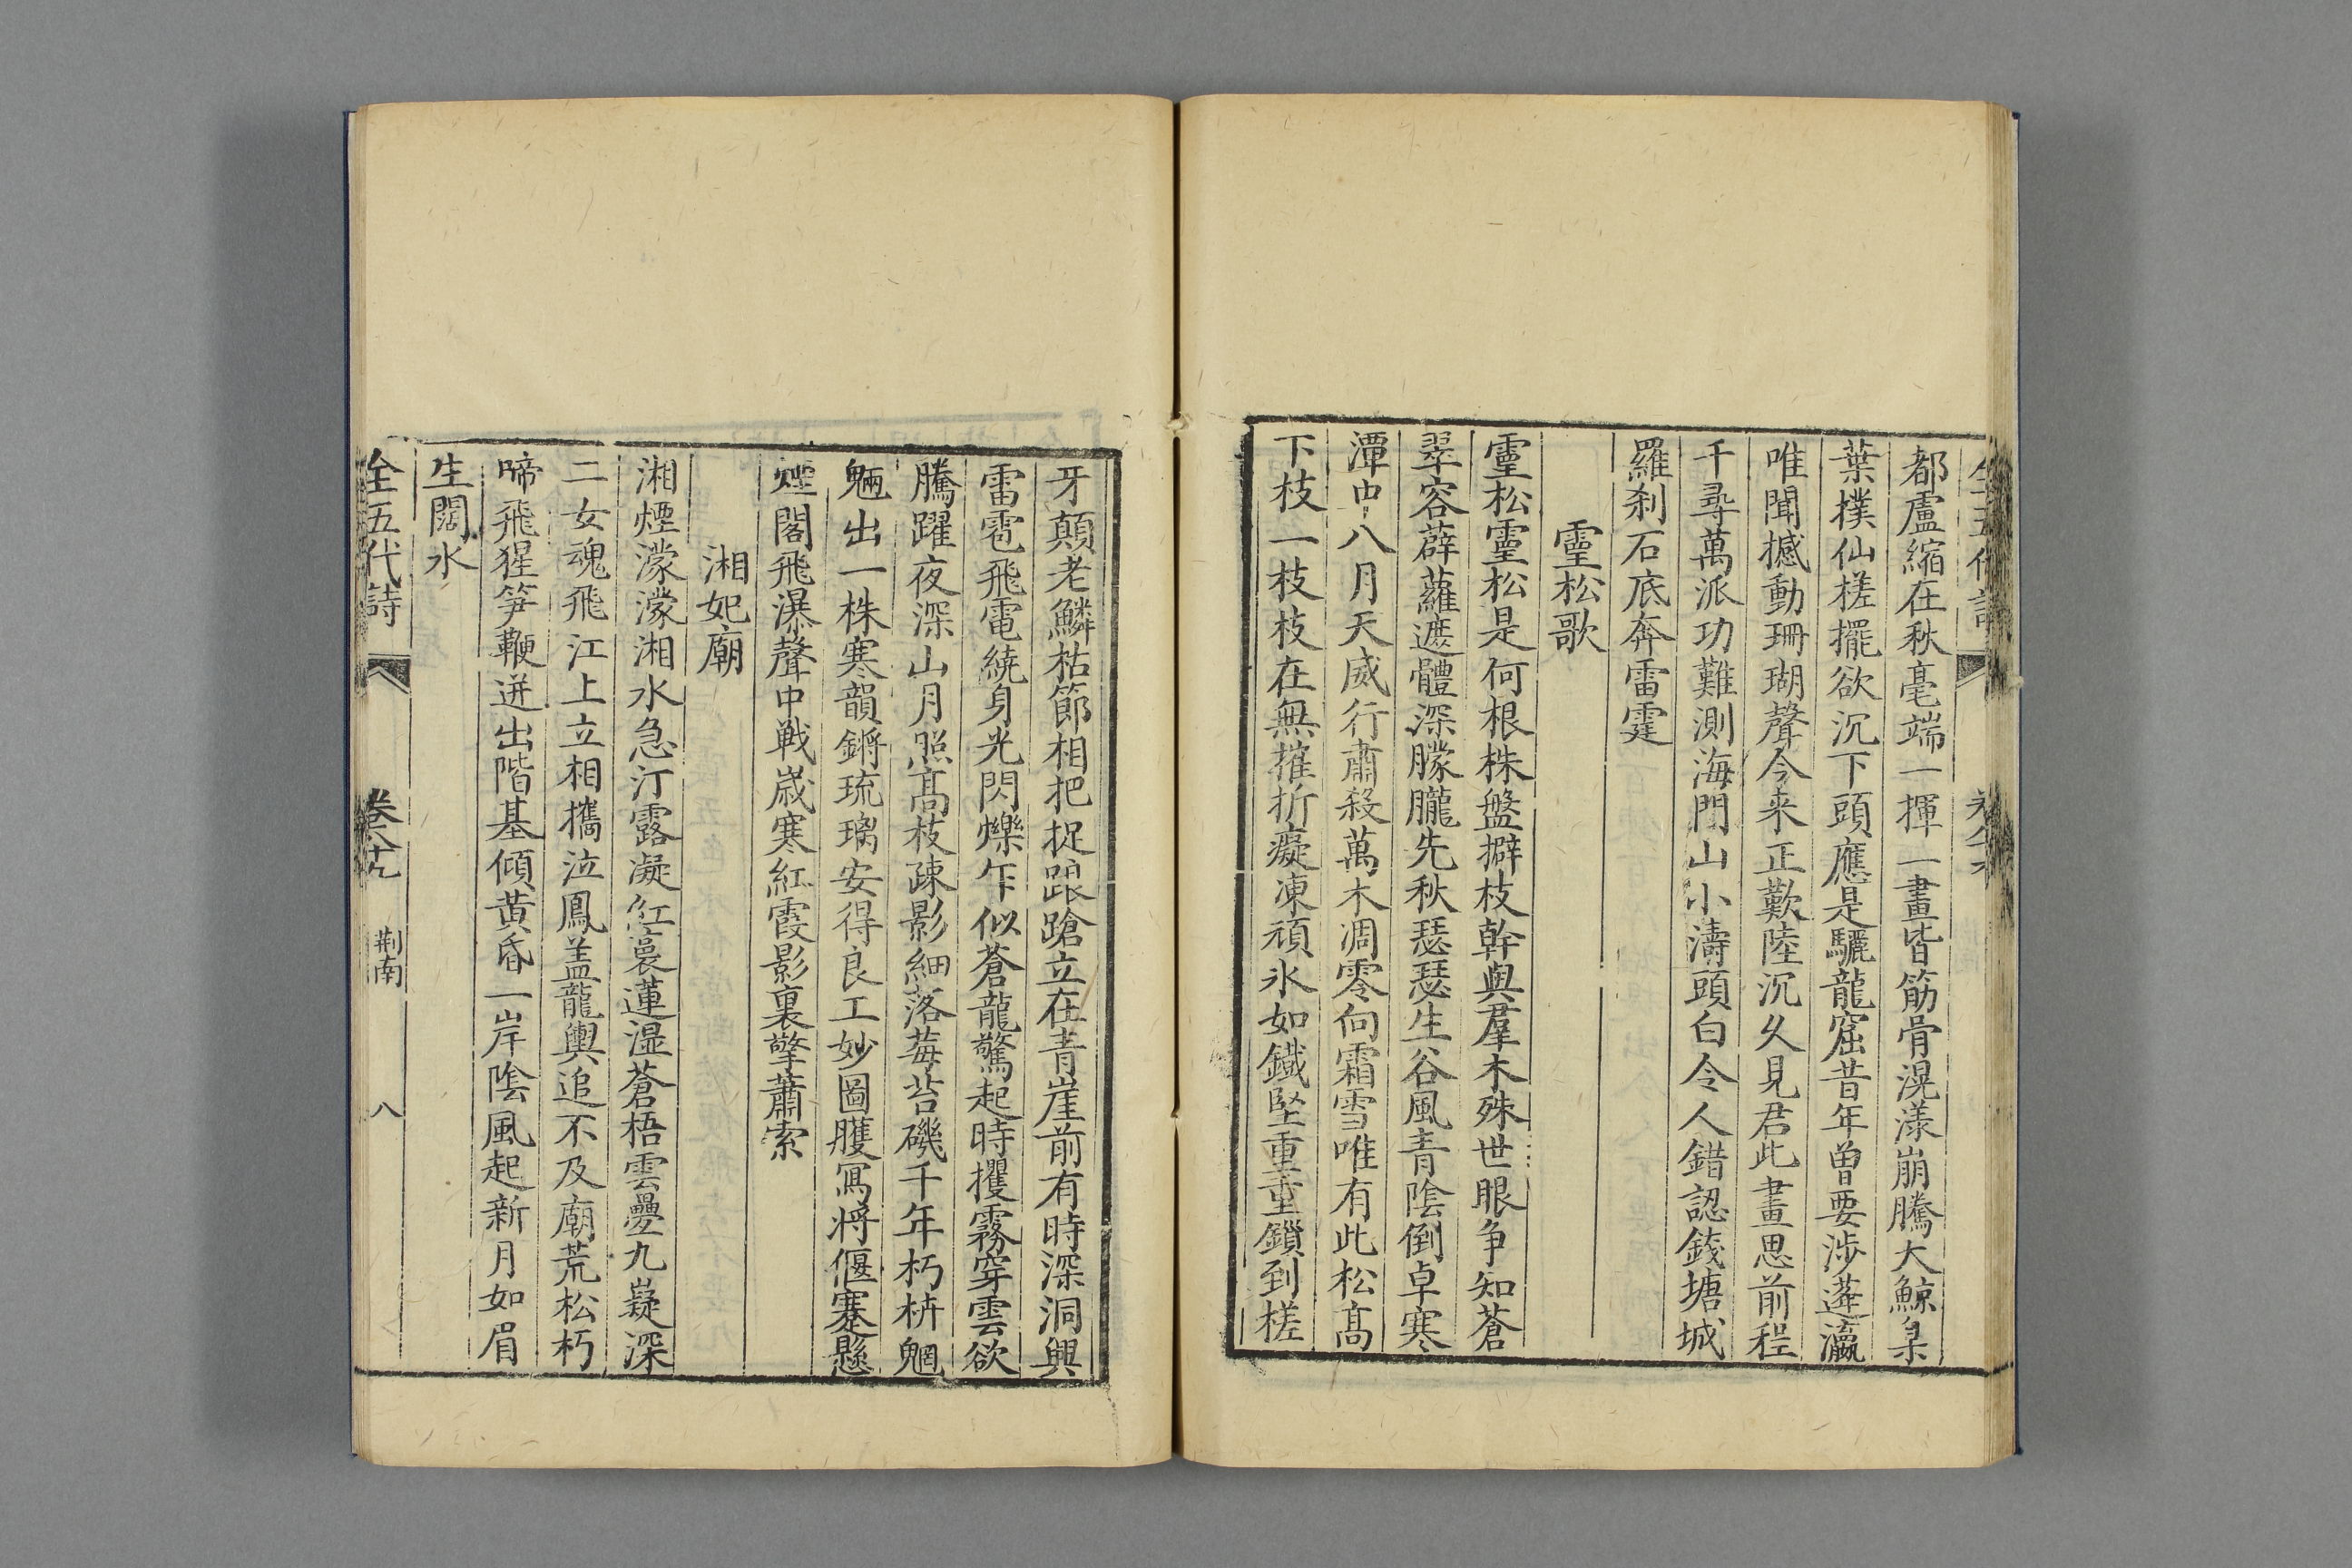 都盧縮在秋毫端一揮一畫皆筋骨滉漾崩騰大鯨臬
葉樸仙槎擺欲沉下頭應是驪龍窟昔年曾要涉蓬瀛
唯聞撼動珊瑚聲今来正歎陸沉久見君此畫思前程
千尋萬派功難測海門山小濤頭白令人錯認錢塘城
羅刹石底奔雷霆
靈松歌
靈松靈松是何根株盤擗枝幹與羣木殊世眼争知蒼
翠容薜蘿遮體深朦朧先秋瑟瑟生谷風青陰倒卓寒
潭中八月天威行肅殺萬木凋零向霜雪唯有此松髙
下枝一枝枝在無摧折癡凍頑氷如鐵堅重重鎖到槎
牙顛老鱗枯節相把捉踉蹌立在青崖前有時深洞興
雷雹飛電繞身光閃爍乍似蒼龍驚起時攫霧穿雲欲
騰躍夜深山月照髙枝疎影細落莓苔磯千年朽枿魍
魎出一株寒韻鏘琉璃安得良工妙圖雘冩将偃蹇懸
煙閣飛瀑聲中戰歲寒紅霞影裏擎蕭索
湘妃廟
湘煙濛濛湘水急汀露凝紅裛蓮湿蒼梧雲疊九嶷深
二女魂飛江上立相攜泣鳳盖龍輿追不及廟荒松朽
啼飛猩笋鞭迸出階基傾黄昏一岸陰風起新月如眉
生闊水
全五代詩 卷八十九 荆南 八